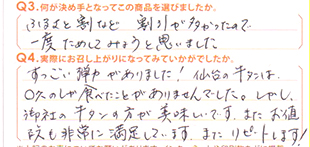 Q3.何が決め手となってこの商品を選びましたか。
ふるさと割など 割引が多かったので
一度ためしてみようと思いました
Q4.実際にお召し上がりになってみていかがでしたか。
すっごい弾力がありました！仙台の牛タンは、
久のしか食べたことがありませんでした。しかし、
御社の牛タンの方が美味しいです。またお値
段も非常に満足しています。またリピートします！